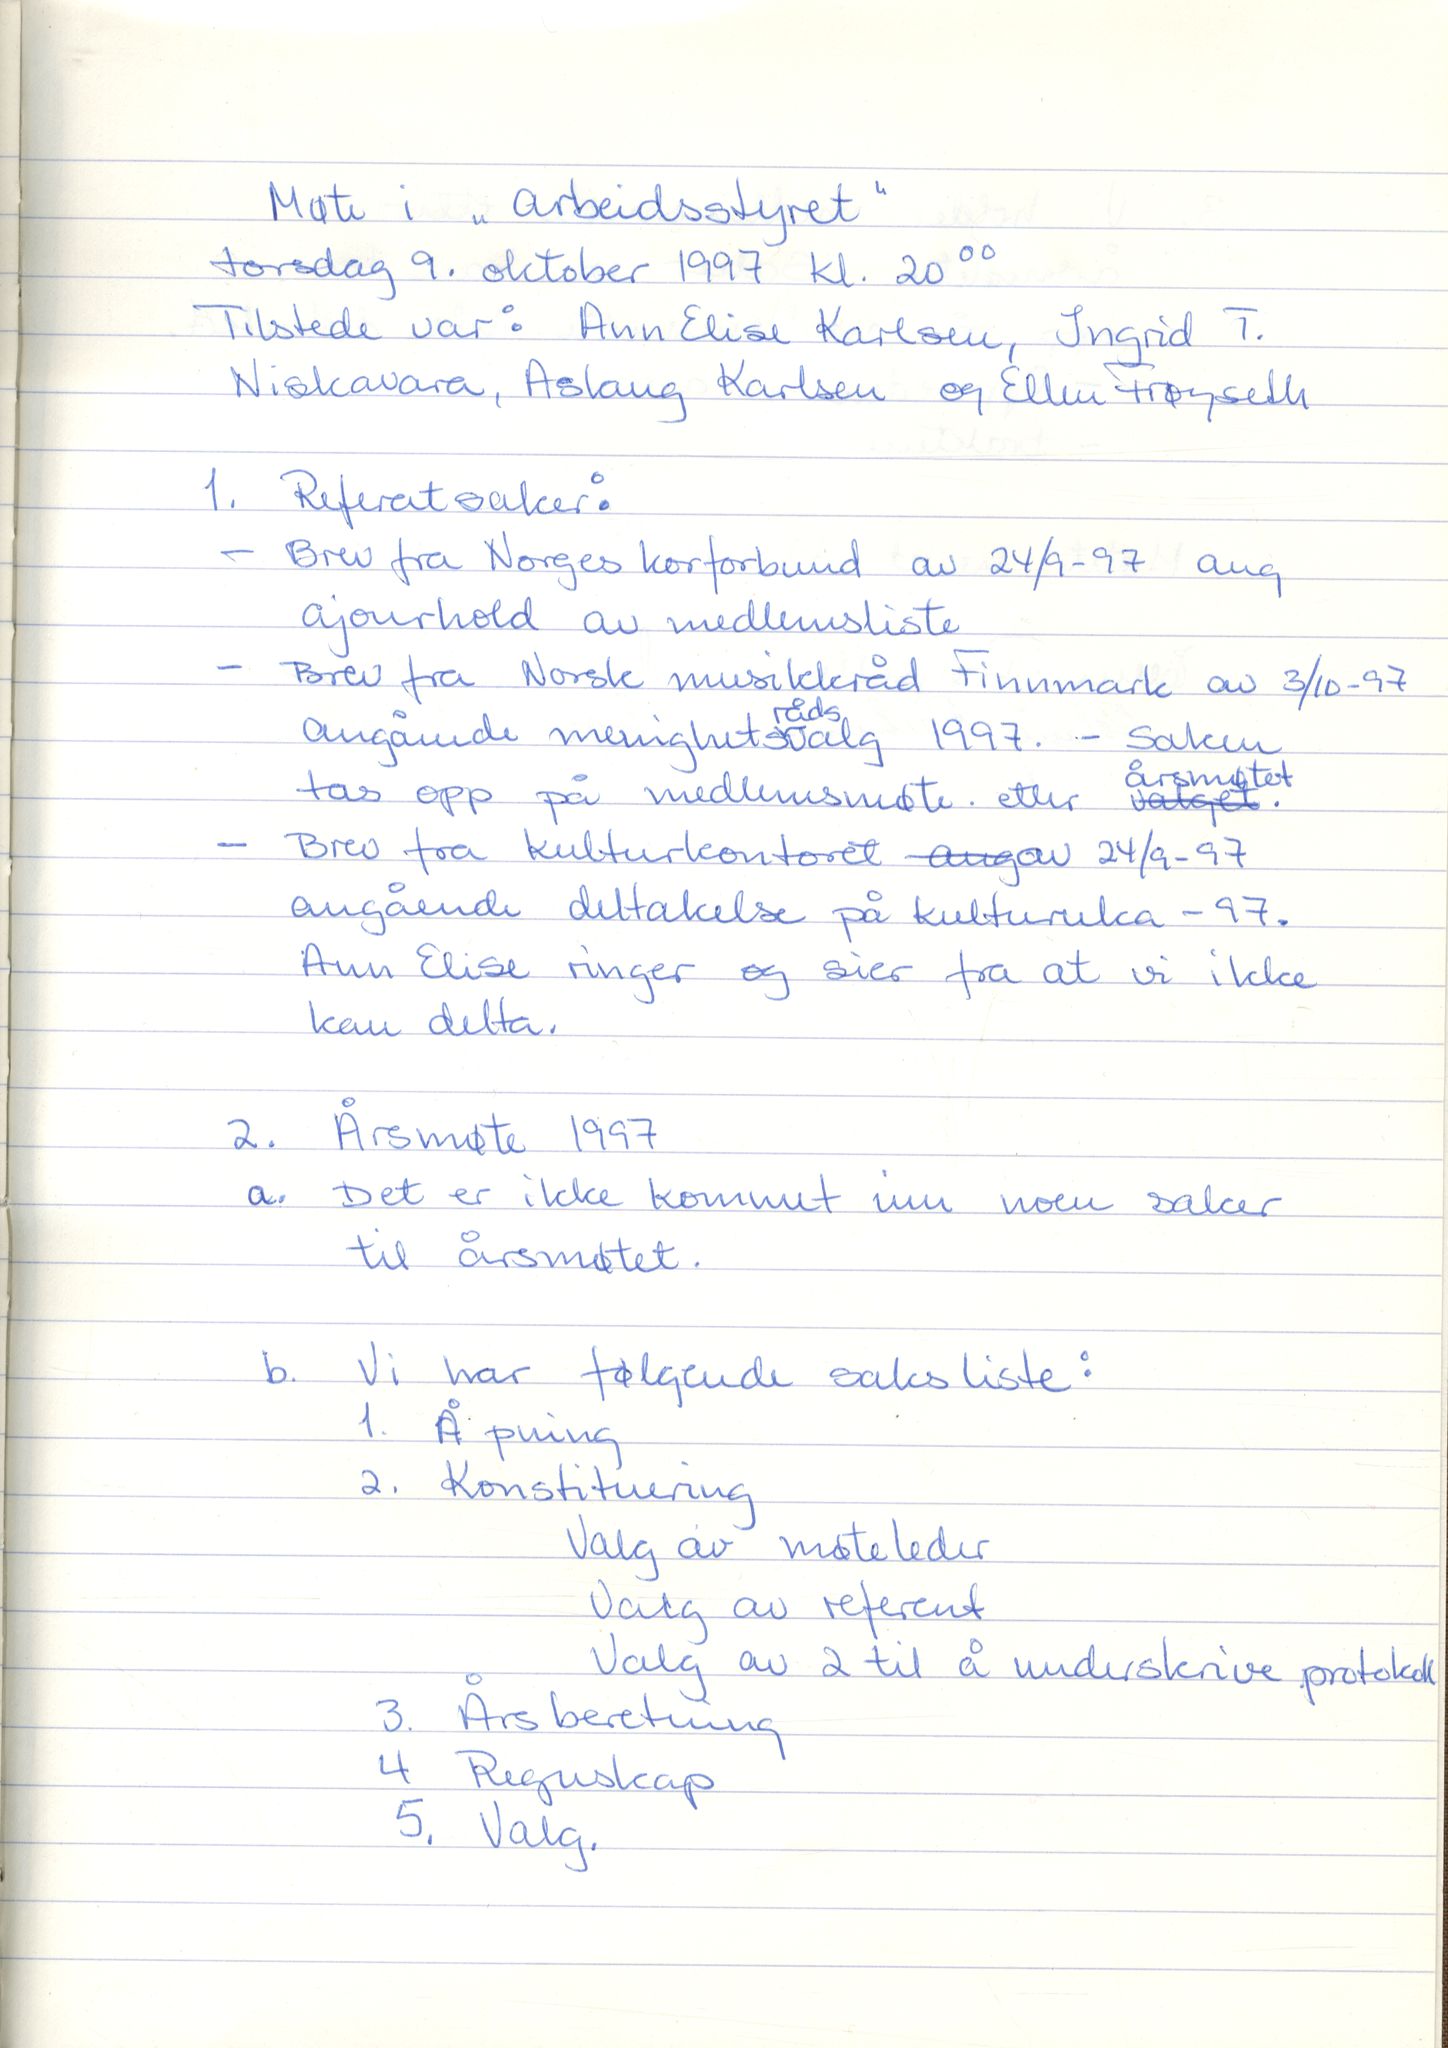 Møte i „arbeidsstyret“
torsdag 9. oktober 1997 kl. 20⁰⁰
Tilstede var: Ann Elise Karlsen, Ingrid T.
Niskavara, Aslaug Karlsen og Ellen Frøyseth
1. Referatsaker:
- Brev fra Norges korforbund av 24/9-97 ang
ajourhold av medlemsliste
- Brev fra Norsk musikkråd Finnmark av 3/10-97
angående menighetsrådsvalg 1997. - Saken
tas opp på medlemsmøte. etter årsmøtet.
- Brev fra kulturkontoret av 24/9-97
angående deltakelse på kulturuka -97.
Ann Elise ringer og sier fra at vi ikke
kan delta.
2. Årsmøte 1997
a. Det er ikke kommet inn noen saker
til årsmøtet.
b. Vi har følgende saksliste:
1. Åpning
2. Konstituering
Valg av møteleder
Valg av referent
Valg av 2 til å underskrive protokoll
3. Årsberetning
4 Regnskap
5. Valg.